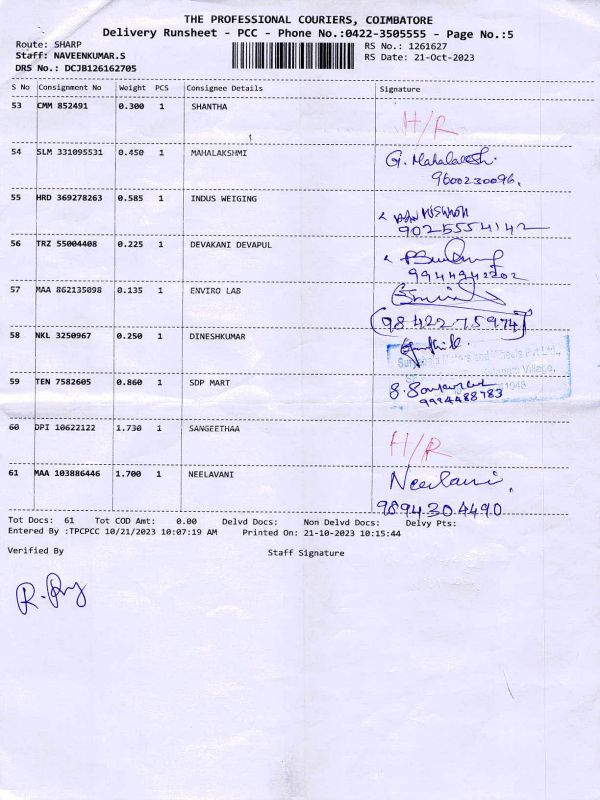 THE PROFESSIONAL COURIERS, COIMBATORE
Delivery Runsheet - PCC - Phone No.:0422-3505555 - Page No.:5
Route: SHARP
Staff: NAVEENKUMAR.S
DRS No.: DCJB126162705
RS No.: 1261627
RS Date: 21-Oct-2023
S No Consignment No Weight PCS Consignee Details Signature
53 CMM 852491 0.300 1 SHANTHA H/R
54 SLM 331095531 0.450 1 MAHALAKSHMI G. Mahalaksh.
9600230096.
55 HRD 369278263 0.585 1 INDUS WEIGING
9025554142
56 TRZ 55004408 0.225 1 DEVAKANI DEVAPUL
9944942202
57 MAA 862135098 0.135 1 ENVIRO LAB
9842275974
58 NKL 3250967 0.250 1 DINESHKUMAR
59 TEN 7582605 0.860 1 SDP MART
9994488783
60 DPI 10622122 1.730 1 SANGEETHAA H/R
61 MAA 103886446 1.700 1 NEELAVANI Neelavani.
9894304490
Tot Docs: 61 Tot COD Amt: 0.00 Delvd Docs: Non Delvd Docs: Delvy Pts:
Entered By :TPCPCC 10/21/2023 10:07:19 AM Printed On: 21-10-2023 10:15:44
Verified By Staff Signature